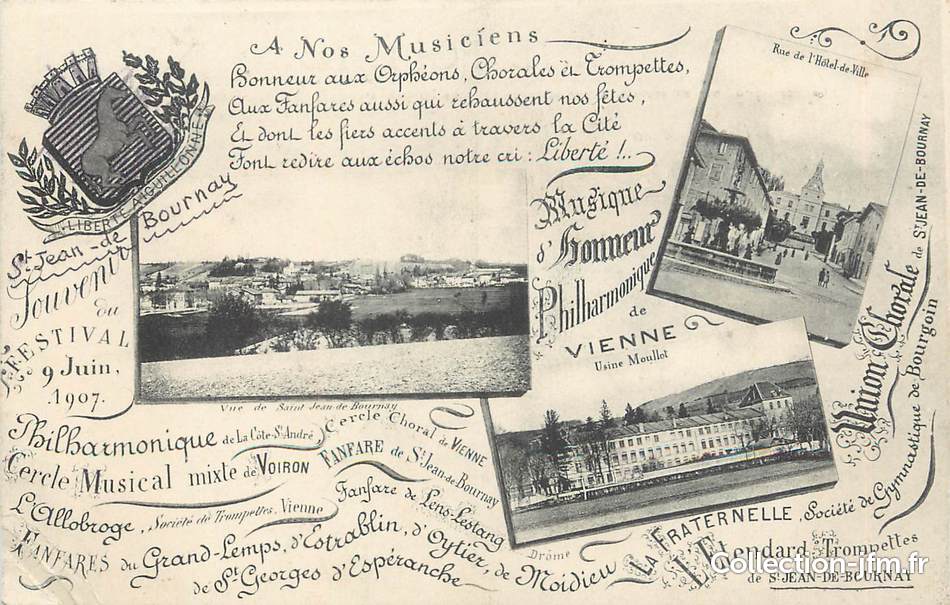 A Nos Musiciens
Honneur aux Orphéons, Chorales et Trompettes,
Aux Fanfares aussi qui rehaussent nos fêtes,
Et dont les fiers accents à travers la Cité
Font redire aux échos notre cri : Liberté !..
LIBERTÉ AIGUILLONNE
St Jean-de Bournay
Souvenir
du
FESTIVAL
9 Juin,
1907.
Vue de Saint Jean-de Bournay
Rue de l'Hôtel-de-Ville
Musique
d'Honneur
Philharmonique
de
VIENNE
Usine Moullot
Union Chorale de St JEAN-DE-BOURNAY
Philharmonique de La Côte-St-André,
Cercle Choral de VIENNE
Cercle Musical mixte de VOIRON
FANFARE de St Jean-de Bournay
L'Allobroge, Société de Trompettes, Vienne
Fanfare de Lens-Lestang
Drôme
FANFARES du Grand-Lemps, d'Estrablin, d'Oytier, de Moidieu
de St Georges d'Espéranche
LA FRATERNELLE, Société de Gymnastique de Bourgoin
L'Etendard Trompettes
de St JEAN-DE-BOURNAY
Collection-jfm.fr